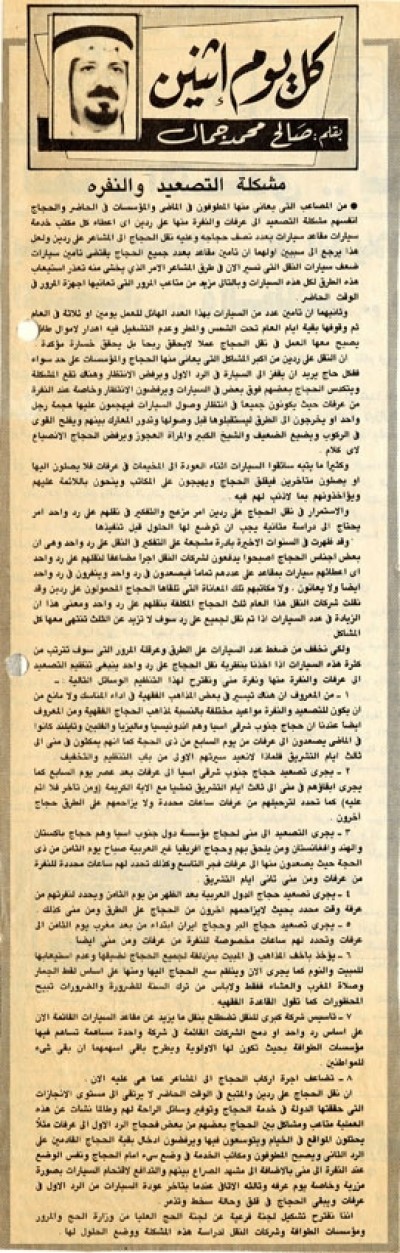 كل يوم إثنين
بقلم: صالح محمد جمال
مشكلة التصعيد والنفره
● من المصاعب التى يعانى منها المطوفون في الماضى والمؤسسات في الحاضر والحجاج
انفسهم مشكلة التصعيد الى عرفات والنفرة منها على ردين اى اعطاء كل مكتب خدمة
سيارات مقاعد سيارات بعدد نصف حجاجه وعليه نقل الحجاج الى المشاعر على ردين ولعل
هذا يرجع الى سببين اولهما ان تأمين مقاعد بعدد جميع الحجاج يقتضى تأمين سيارات
ضعف سيارات النقل التى تسير الان في طرق المشاعر الامر الذى يخشى منه تعذر استيعاب
هذه الطرق لكل هذه السيارات وبالتالى مزيد من متاعب المرور التى تعانيها اجهزة المرور في
الوقت الحاضر.
وثانيهما ان تأمين عدد من السيارات بهذا العدد الهائل للعمل يومين او ثلاثة في العام
ثم وقوفها بقية ايام العام تحت الشمس والمطر وعدم التشغيل فيه اهدار لاموال
يصبح معها العمل في نقل الحجاج عملا لايحقق ربحا بل يحقق خسارة مؤكدة.
ان النقل على ردين من اكبر المشاكل التى يعانى منها الحجاج والمؤسسات على حد سواء
فكل حاج يريد ان يقفز الى السيارة في الرد الاول ويرفض الانتظار وهناك تقع المشكلة
ويتكدس الحجاج بعضهم فوق بعض في السيارات ويرفضون الانتظار وخاصة عند النفرة
من عرفات حيث يكونون جميعا في انتظار وصول السيارات فيهجمون عليها هجمة رجل
واحد او يخرجون الى الطرق ليستقبلوها قبل وصولها وتدور المعارك بينهم ويفلح القوى
في الركوب ويضيع الضعيف والشيخ الكبير والمرأة العجوز ويرفض الحجاج الانصياع
لاى كلام.
وكثيرا ما يتيه سائقوا السيارات اثناء العودة الى المخيمات في عرفات فلا يصلون اليها
او يصلون متأخرين فيقلق الحجاج ويهيجون على المكاتب وينحون باللائمة عليهم
ويؤاخذونهم بما لاذنب لهم فيه.
والاستمرار في نقل الحجاج على ردين امر مزعج والتفكير في نقلهم على رد واحد امر
يحتاج الى دراسة متأنية يجب ان توضع لها الحلول قبل تنفيذها.
وقد ظهرت في السنوات الاخيرة بادرة مشجعة على التفكير في النقل على رد واحد وهى ان
بعض اجناس الحجاج اصبحوا يدفعون لشركات النقل اجرا مضاعفا لنقلهم على رد واحد
اى اعطائهم سيارات بمقاعد على عددهم تماما فيصعدون في رد واحد وينفرون في رد واحد
ايضا ولا يعانون. ولا مكاتبهم تلك المعاناة التى تلقاها الحجاج المحمولون على ردين وقد
نقلت شركات النقل هذا العام ثلث الحجاج المكلفة بنقلهم على رد واحد ومعنى هذا ان
الزيادة في عدد السيارات اذا تم نقل الجميع على رد سوف لا تزيد عن الثلث تنتهى معها كل
المشاكل
ولكى نخفف من ضغط عدد السيارات على الطرق وعرقلة المرور التى سوف تترتب من
كثرة هذه السيارات اذا اخذنا بنظرية نقل الحجاج على رد واحد ينبغى تنظيم التصعيد
الى عرفات والنفرة منها ونفرة منى ونقترح لهذا التنظيم الوسائل التالية: ــ
١ - من المعروف ان هناك تيسير في بعض المذاهب الفقهية في اداء المناسك ولا مانع من
ان يكون للتصعيد والنفرة مواعيد مختلفة بالنسبة لمذاهب الحجاج الفقهية ومن المعروف
ايضا عندنا ان حجاج جنوب شرقى اسيا وهم اندونيسيا وماليزيا والفلبين وتايلند كانوا
في الماضى يصعدون الى عرفات من يوم السابع من ذى الحجة كما انهم يمكثون في منى الى
ثالث ايام التشريق فلماذا لانعيد سيرتهم الاولى من باب التنظيم والتخفيف.
٢ - يجرى تصعيد حجاج جنوب شرقى اسيا الى عرفات بعد عصر يوم السابع كما
يجرى ابقاؤهم في منى الى ثالث ايام التشريق تمشيا مع الاية الكريمة (ومن تأخر فلا اثم
عليه) كما تحدد لترحيلهم من عرفات ساعات محددة ولا يزاحمهم على الطرق حجاج
آخرون.
٣ - يجرى التصعيد الى منى لحجاج مؤسسة دول جنوب اسيا وهم حجاج باكستان
والهند وافغانستان ومن يلحق بهم وحجاج افريقيا غير العربية صباح يوم الثامن من ذى
الحجة حيث يصعدون منها الى عرفات فجر التاسع وكذلك تحدد لهم ساعات محددة للنفرة
من عرفات ومن منى ثانى ايام التشريق.
٤ - يجرى تصعيد حجاج الدول العربية بعد الظهر من يوم الثامن ويحدد لنفرتهم من
عرفة وقت محدد بحيث لايزاحمهم آخرون من الحجاج على الطرق ومن منى كذلك.
٥ - يجرى تصعيد حجاج البر وحجاج ايران ابتداء من بعد مغرب يوم الثامن الى
عرفات وتحدد لهم ساعات مخصوصة للنفرة من عرفات ومن منى ايضا.
٦ - يؤخذ بأخف المذاهب في المبيت بمزدلفة لجميع الحجاج لضيقها وعدم استيعابها
للمبيت والنوم كما يجرى الان وينظم سير الحجاج اليها ومنها على اساس لقط الجمار
وصلاة المغرب والعشاء فقط ولابأس من ترك السنة للضرورة والضرورات تبيح
المحظورات كما تقول القاعدة الفقهية.
٧ - تأسيس شركة كبرى للنقل تضطلع بنقل ما يزيد عن مقاعد السيارات القائمة الان
على اساس رد واحد او دمج الشركات القائمة في شركة واحدة مساهمة تساهم فيها
مؤسسات الطوافة بحيث تكون لها الاولوية ويطرح باقى اسهمها ان بقى شىء
للمواطنين.
٨ - تضاعف اجرة اركاب الحجاج الى المشاعر عما هى عليه الان.
ان نقل الحجاج على ردين والمتبع في الوقت الحاضر لا يرتقى الى مستوى الانجازات
التى حققتها الدولة في خدمة الحجاج وتوفير وسائل الراحة لهم وطالما نشأت عن هذه
العملية متاعب ومشاكل بين الحجاج بعضهم من بعض فحجاج الرد الاول الى عرفات مثلا
يحتلون المواقع في الخيام ويتوسعون فيها ويرفضون ادخال بقية الحجاج القادمين على
الرد الثانى ويصبح المطوفون ومكاتب الخدمة في وضع سىء امام الحجاج ونفس الوضع
عند النفرة الى منى بالاضافة الى مشهد الصراع بينهم والتدافع لاقتحام السيارات بصورة
مزرية وخاصة يوم عرفه وثالثه الاثافى عندما يتأخر عودة السيارات من الرد الاول في
عرفات ويبقى الحجاج في قلق وحالة سخط وتذمر.
اننا نقترح تشكيل لجنة فرعية عن لجنة الحج العليا من وزارة الحج والمرور
ومؤسسات الطوافة وشركات النقل لدراسة هذه المشكلة ووضع الحلول لها.